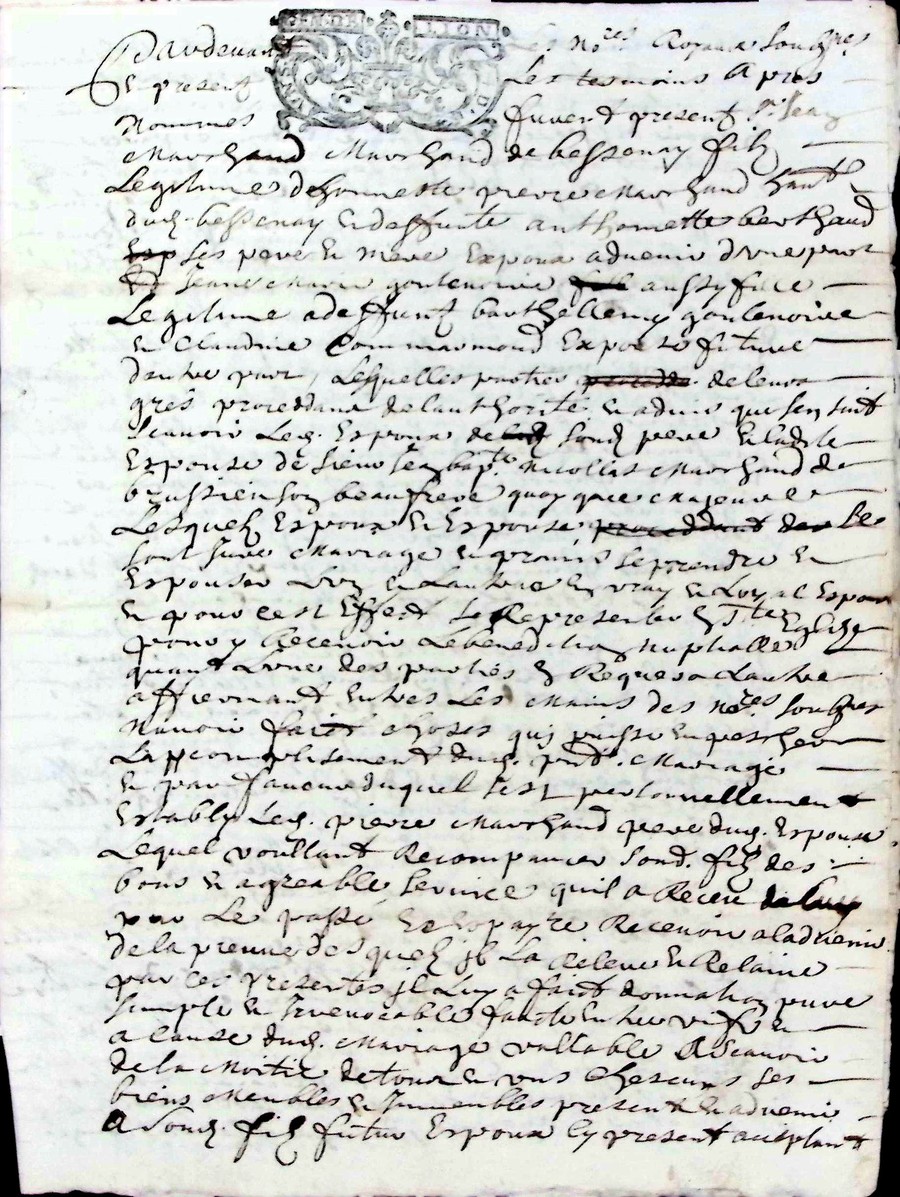 LION
Pardevant les no.res Royaux soub.nes
& presentz les tesmoins apres
nommes furent presentz Sr Jean
Marchand Marchand de bessenay filz
Legitime d'honneste pierre Marchand hant
dud. bessenay & deffunte anthoinette berthaud
ses pere & mere Expoux advenir d'une part
& Jeanne Marie goutenoire aussy fille
Legitime a deffunt barthellemy goutenoire
& Claudine Commarmond Expouse future
dautre part, Lesquelles parties de leurs
gres proceddans de lauthorité & advis que sen suit
scavoir Led. Espoux de sond. pere & lad.te
Espouse de sieur Jean bap.te Nicollas Marchand de
brussieu son beaufrere quoy que majeure
Lesquelz Espoux & Espouse se
sont faire Mariage & promis se prendre &
Espouser Lun & Lautre en vray & Loyal Espoux
& pour cest Effect se Representer en S.te Eglise
pour y Recevoir La benediction nuptialle
quant Lune des parties en Requera Lautre
affirmant entre Les Mains des no.res soub.nes
navoir faict choses quy puisse Empescher
Laccomplisement dud. pnt. Mariage
& par faveur duquel sest personnellement
Estably Led. pierre Marchand pere dud. Espoux
Lequel voullant Recompancer sond. filz des
bons & agreable service quil a Receu de luy
par Le passé & Espere Recevoir a ladvenir
de la preuve desquelz il La Releve & Relaive
par ces presentes il Luy a faict donnation pure
simple & Irrevocable faicte entre vifz &
a cause dud. Mariage vallable A Scavoir
de la Moitié de tous & uns chescuns ses
biens Meubles & Immeubles present & advenir
A sond. filz futur Espoux cy present acceptant